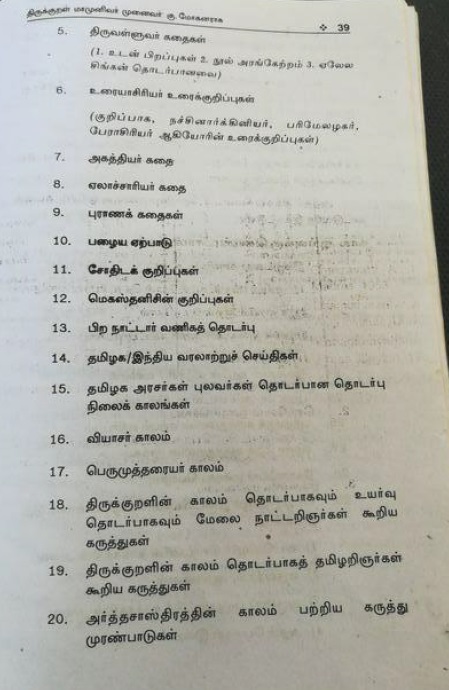 திருக்குறள் மாமுனிவர் முனைவர் கு. மோகனராசு ❖ 39
5. திருவள்ளுவர் கதைகள்
(1. உடன் பிறப்புகள் 2. நூல் அரங்கேற்றம் 3. ஏலேல
சிங்கன் தொடர்பானவை)
6. உரையாசிரியர் உரைக்குறிப்புகள்
(குறிப்பாக, நச்சினார்க்கினியர், பரிமேலழகர்,
பேராசிரியர் ஆகியோரின் உரைக்குறிப்புகள்)
7. அகத்தியர் கதை
8. ஏலாச்சாரியர் கதை
9. புராணக் கதைகள்
10. பழைய ஏற்பாடு
11. சோதிடக் குறிப்புகள்
12. மெகஸ்தனிசின் குறிப்புகள்
13. பிற நாட்டார் வணிகத் தொடர்பு
14. தமிழக/இந்திய வரலாற்றுச் செய்திகள்
15. தமிழக அரசர்கள் புலவர்கள் தொடர்பான தொடர்பு
நிலைக் காலங்கள்
16. வியாசர் காலம்
17. பெருமுத்தரையர் காலம்
18. திருக்குறளின் காலம் தொடர்பாகவும் உயர்வு
தொடர்பாகவும் மேலை நாட்டறிஞர்கள் கூறிய
கருத்துகள்
19. திருக்குறளின் காலம் தொடர்பாகத் தமிழறிஞர்கள்
கூறிய கருத்துகள்
20. அர்த்தசாஸ்திரத்தின் காலம் பற்றிய கருத்து
முரண்பாடுகள்